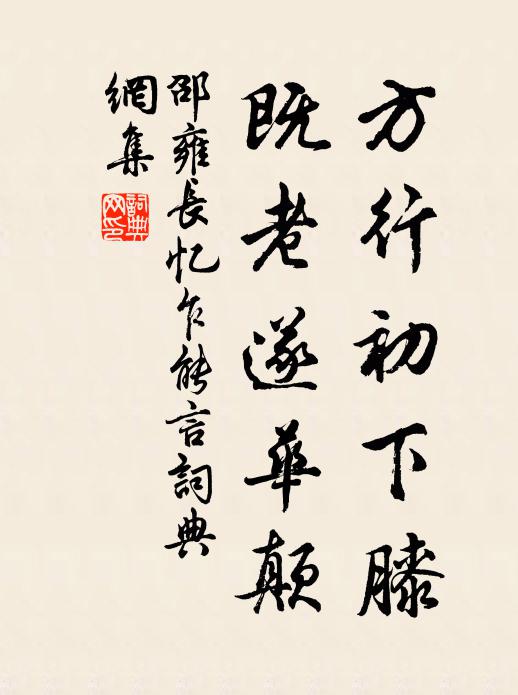 方行初下膝
既老遂華顛
邵雍長忆乍能言詞典
網集
詞典
网印